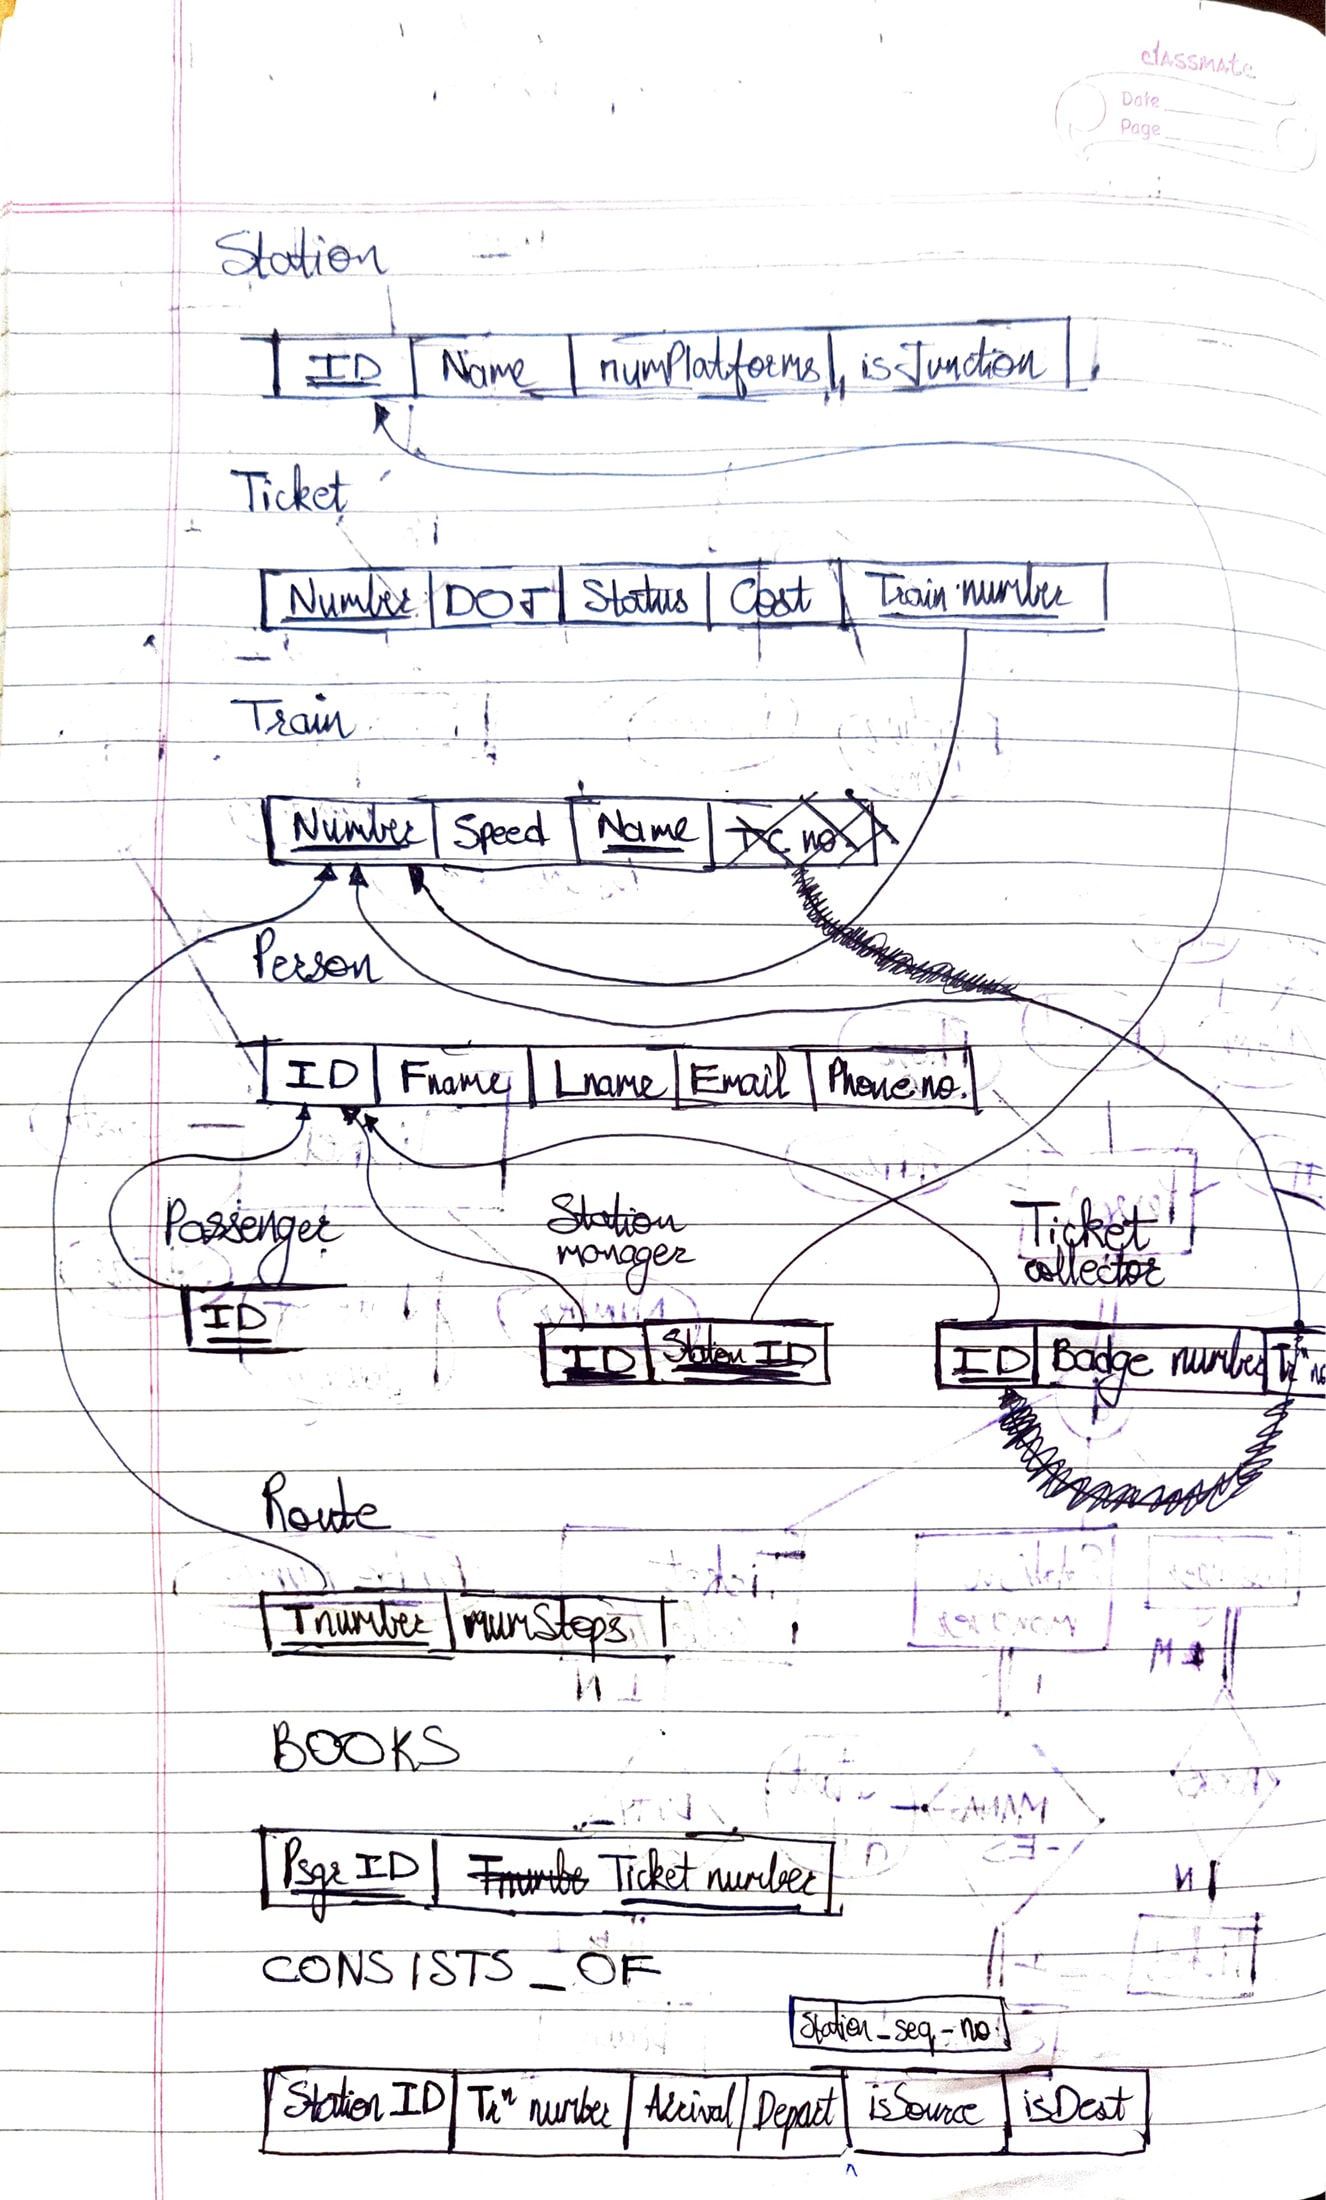 classmate
Date
Page
Station
ID Name numPlatforms isJunction
Ticket
Number DOJ Status Cost Train number
Train
Number Speed Name TC no.
Person
ID Fname Lname Email Phone no.
Passenger Station manager Ticket collector
ID
ID Station ID ID Badge number Trⁿ no
Route
Tnumber numStops
BOOKS
Psgr ID Tnumbe Ticket number
CONSISTS_OF
Station_seq_no.
Station ID Trⁿ number Arrival Depart isSource isDest